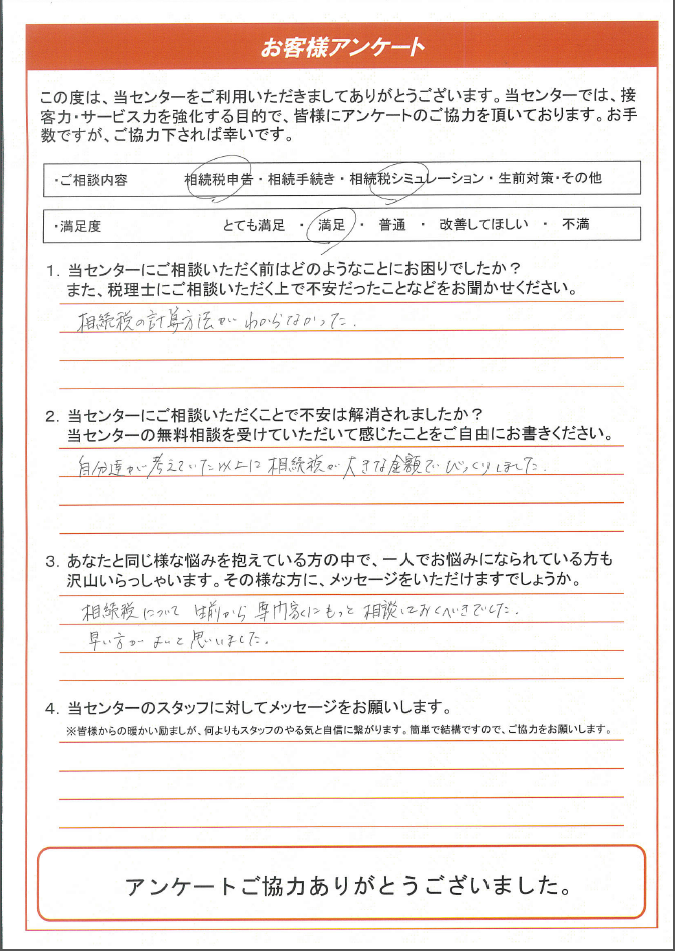 お客様アンケート
この度は、当センターをご利用いただきましてありがとうございます。当センターでは、接
客力・サービス力を強化する目的で、皆様にアンケートのご協力を頂いております。お手
数ですが、ご協力下されば幸いです。
・ご相談内容 相続税申告・相続手続き・相続税シミュレーション・生前対策・その他
・満足度 とても満足 ・ 満足 ・ 普通 ・ 改善してほしい ・ 不満
1. 当センターにご相談いただく前はどのようなことにお困りでしたか？
また、税理士にご相談いただく上で不安だったことなどをお聞かせください。
相続税の計算方法がわからなかった。
2. 当センターにご相談いただくことで不安は解消されましたか？
当センターの無料相談を受けていただいて感じたことをご自由にお書きください。
自分達が考えていた以上に相続税が大きな金額でびっくりしました。
3. あなたと同じ様な悩みを抱えている方の中で、一人でお悩みになられている方も
沢山いらっしゃいます。その様な方に、メッセージをいただけますでしょうか。
相続税について 生前から専門家にもっと相談しておくべきでした。
早い方がよいと思いました。
4. 当センターのスタッフに対してメッセージをお願いします。
※皆様からの暖かい励ましが、何よりもスタッフのやる気と自信に繋がります。簡単で結構ですので、ご協力をお願いします。
アンケートご協力ありがとうございました。